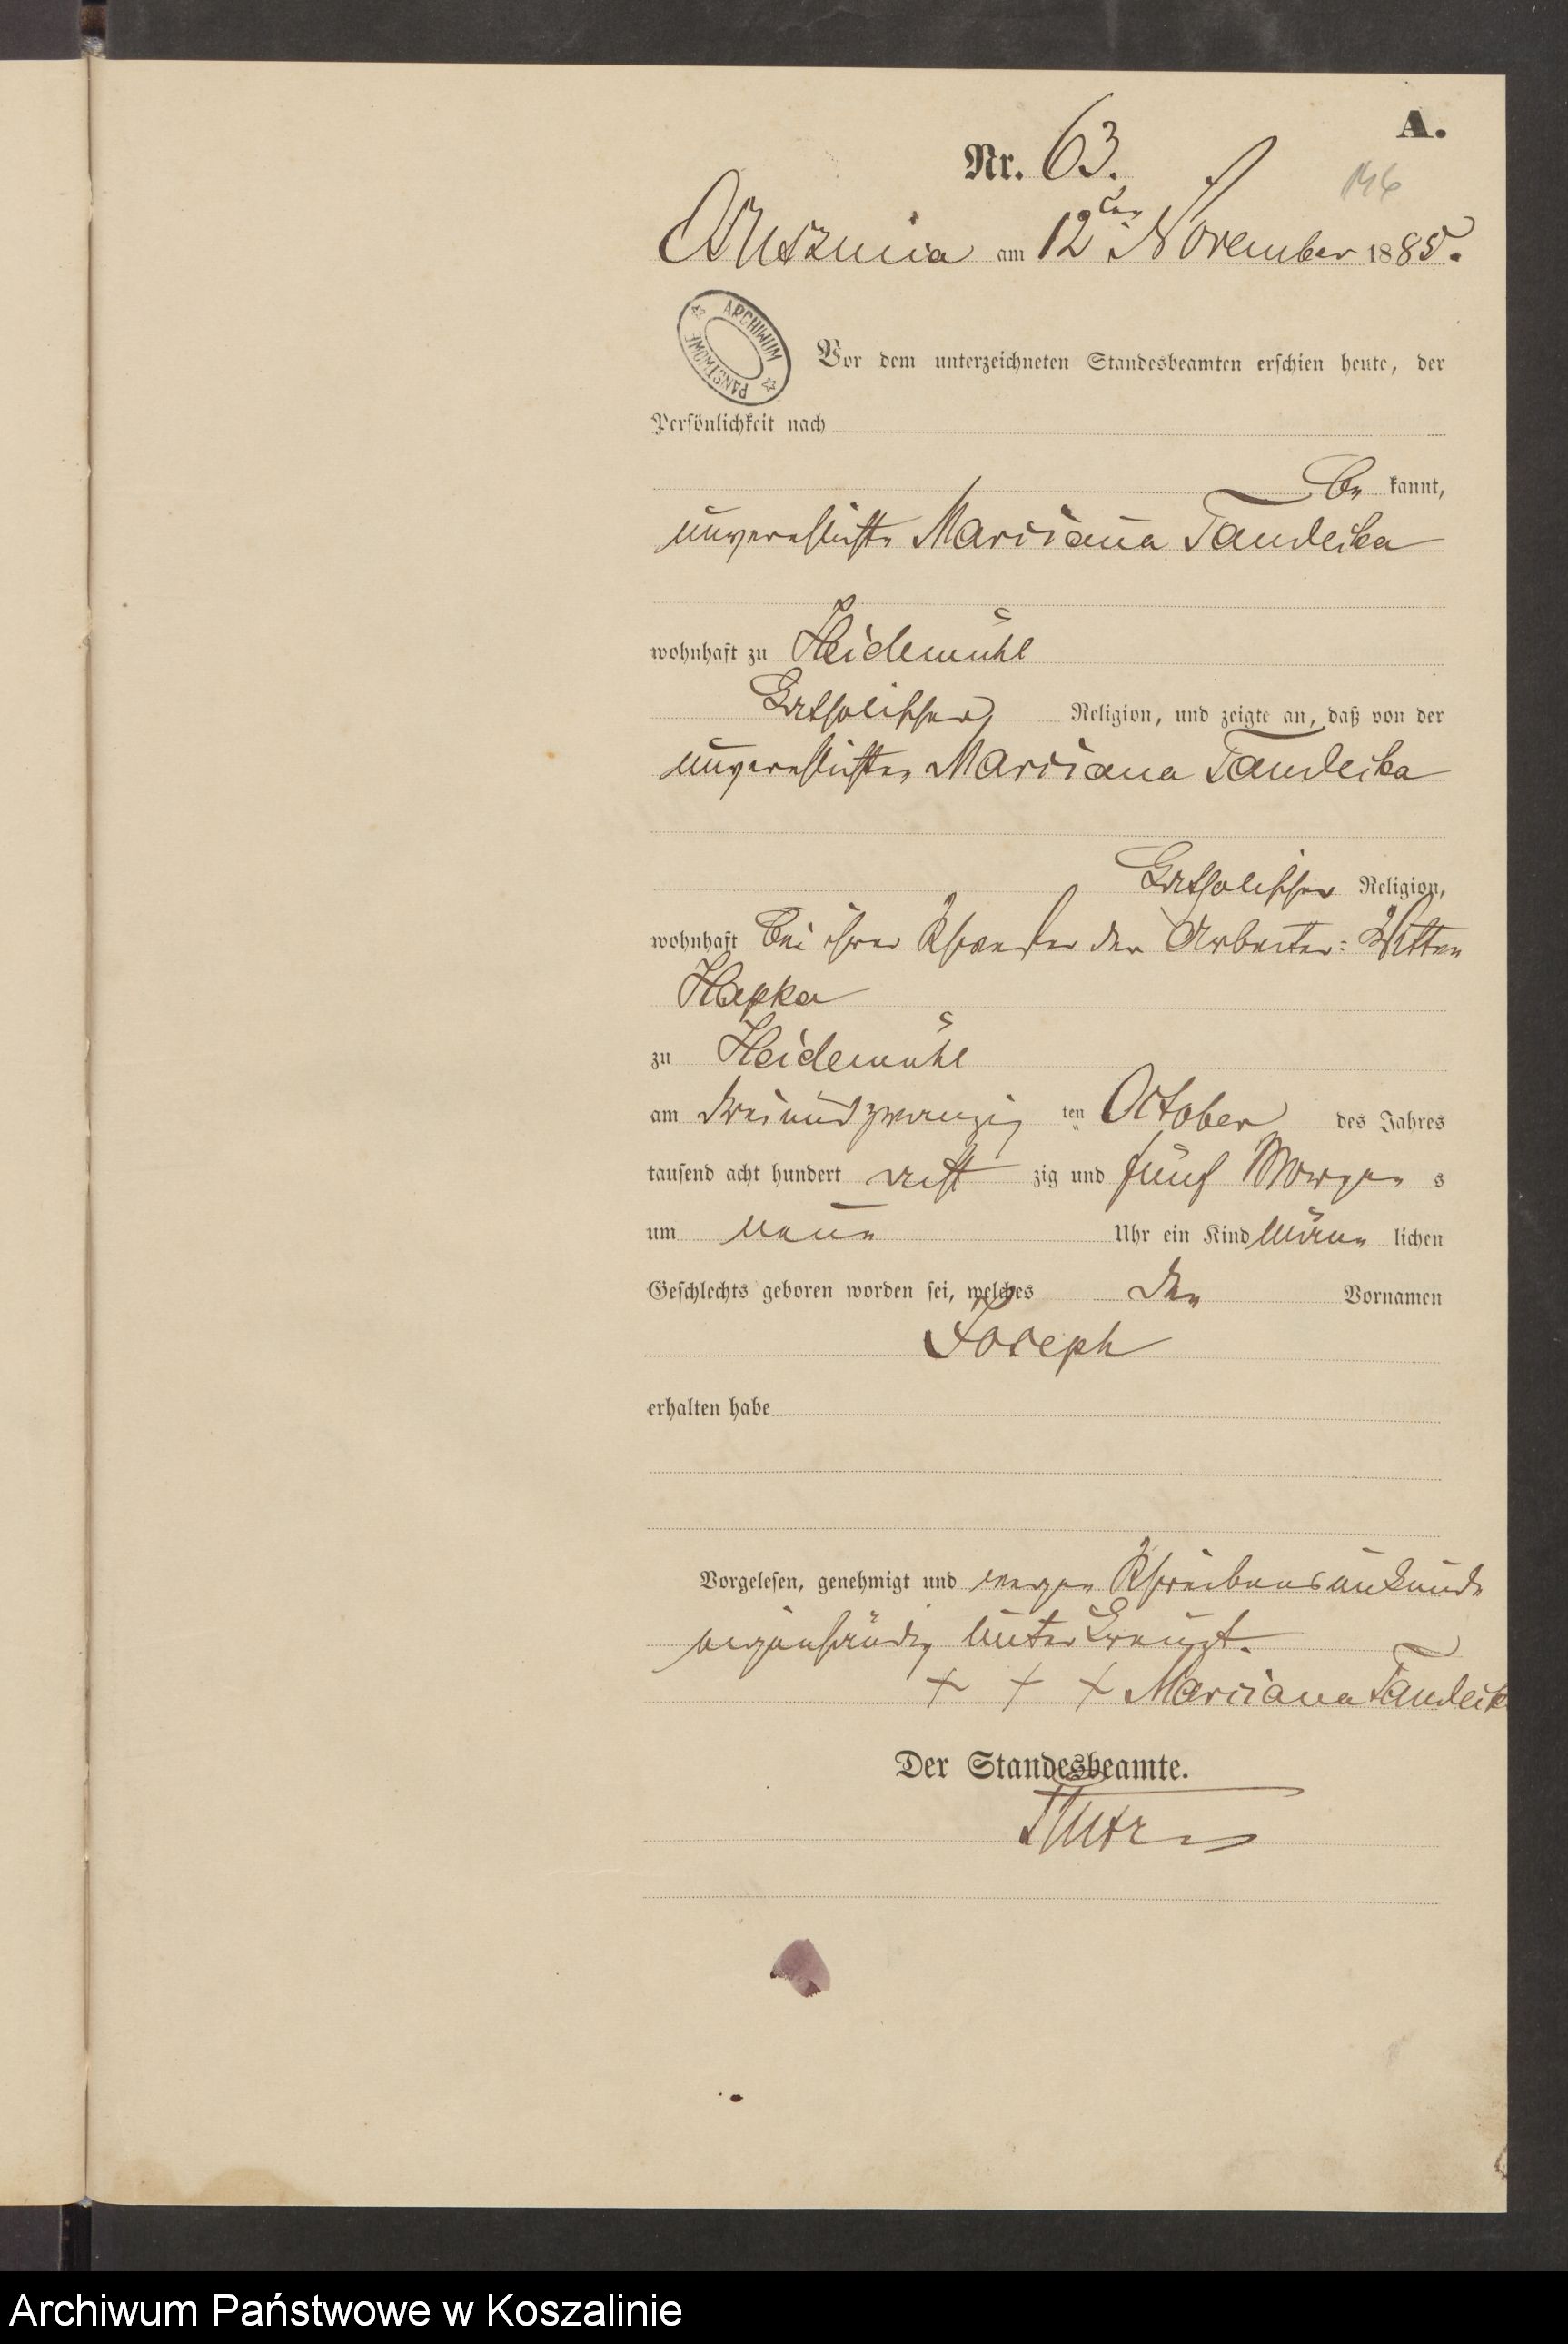 A.
Nr. 63.
146
am 12ten November 1885.
ARCHIWUM PAŃSTWOWE
Vor dem unterzeichneten Standesbeamten erschien heute, der
Persönlichkeit nach
be kannt,
unverehlichte Marianna Tandecka
wohnhaft zu Heidemühl
katholischer Religion, und zeigte an, daß von der
unverehlichten Marianna Tandecka
katholischer Religion,
wohnhaft bei ihrer Schwester der Arbeiter= Wittwe
Hapka
zu Heidemühl
am dreiundzwanzig ten October des Jahres
tausend acht hundert acht zig und fünf Morgen s
um neun Uhr ein Kind männ lichen
Geschlechts geboren worden sei, welches den Vornamen
Joseph
erhalten habe
Vorgelesen, genehmigt und wegen Schreibensunkunde
eigenhändig unterkreuzt.
+ + + Marianna Tandeck
Der Standesbeamte.
Archiwum Państwowe w Koszalinie